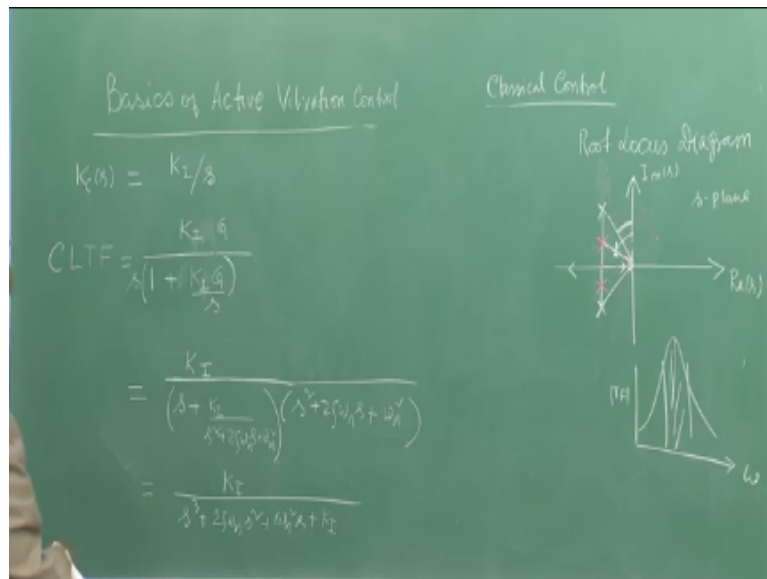 Basics of Active Vibration Control
K_c(s) = K_I/s
CLTF = K_I G / s(1 + K_I G / s)
= K_I / (s + K_I / s²+2ζω_n s+ω_n²)(s²+2ζω_n s+ω_n²)
= K_I / s³+2ζω_n s²+ω_n² s+K_I
Classical Control
Root Locus Diagram
Im(s)
s-plane
Re(s)
|TF|
ω